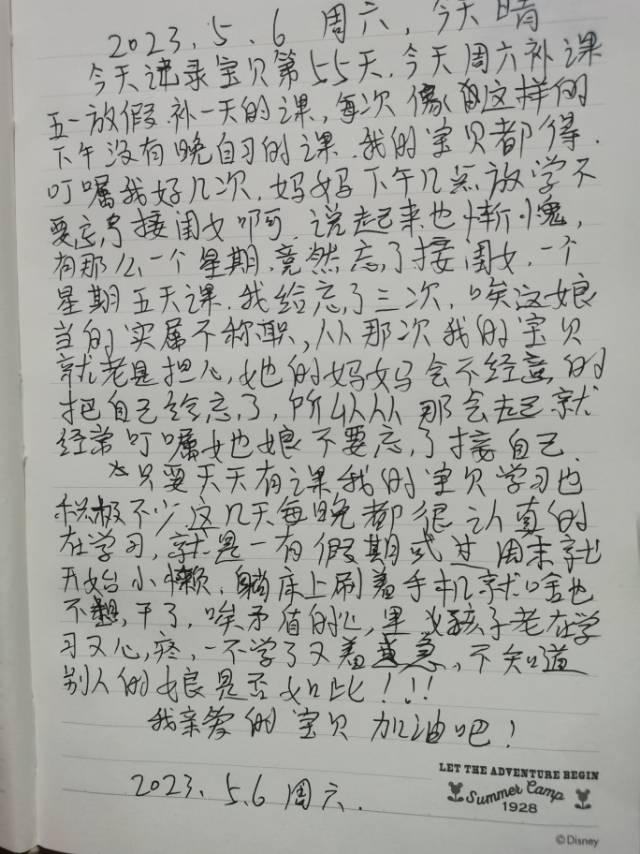 2023.5.6 周六,今天晴
今天记录宝贝第55天.今天周六补课
五一放假补一天的课,每次像这样的
下午没有晚自习的课.我的宝贝都得.
叮嘱我好几次,妈妈下午几点放学不
要忘了接闺女啊,说起来也惭愧,
有那么一个星期.竟然忘了接闺女,一个
星期五天课.我给忘了三次,唉这娘
当的实属不称职,从那次我的宝贝
就老是担心,她的妈妈会不经意的
把自己给忘了,所以从那会起就
经常叮嘱她娘不要忘了接自己.
只要天天有课我的宝贝学习也
积极不少,这几天每晚都很认真的
在学习,就是一有假期或过周末就
开始小懒,躺床上刷着手机就啥也
不想干了,唉矛盾的心里,孩子老在学
习又心疼,一不学了又着急,不知道
别人的娘是否如此!!!
我亲爱的宝贝加油吧!
2023.5.6周六.
LET THE ADVENTURE BEGIN
Summer Camp
1928
©Disney